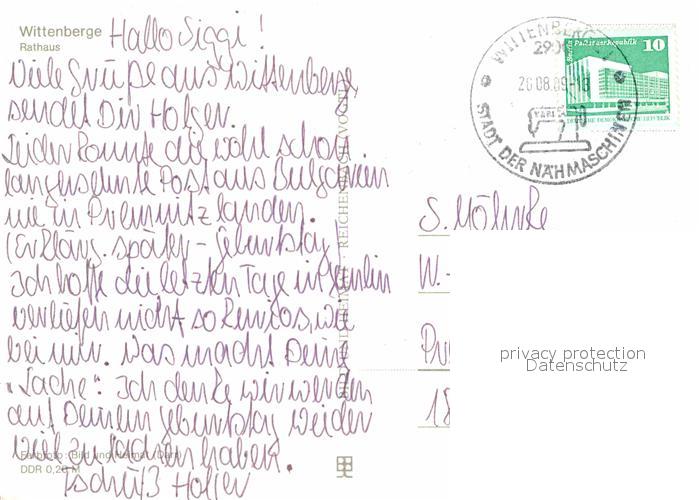 Wittenberge
Rathaus
Hallo Siggi!
viele Grüße aus Wittenberge
sendet Dir Holger
Leider konnte die wohl schon
langersehnte Post aus Bulgarien
nie in Premnitz landen.
(Erkläng. später - Geburtstag)
Ich hoffe die letzten Tage in Berlin
verliefen nicht so wie
bei mir. Was macht Deine
"Sache": Ich denke wir werden
auf Deinem Geburtstag wieder
viel zu lachen haben.
Tschüß Holger
Farbfoto: Bild und Heimat (Darr)
DDR 0,20 M
REICHENBACH (VOGTL)
WITTENBERGE
290
26.08.89-18
STADT DER NÄHMASCHINEN
Berlin Palast der Republik
10
DEUTSCHE DEMOKRATISCHE REPUBLIK
S.
W.-
18
privacy protection
Datenschutz